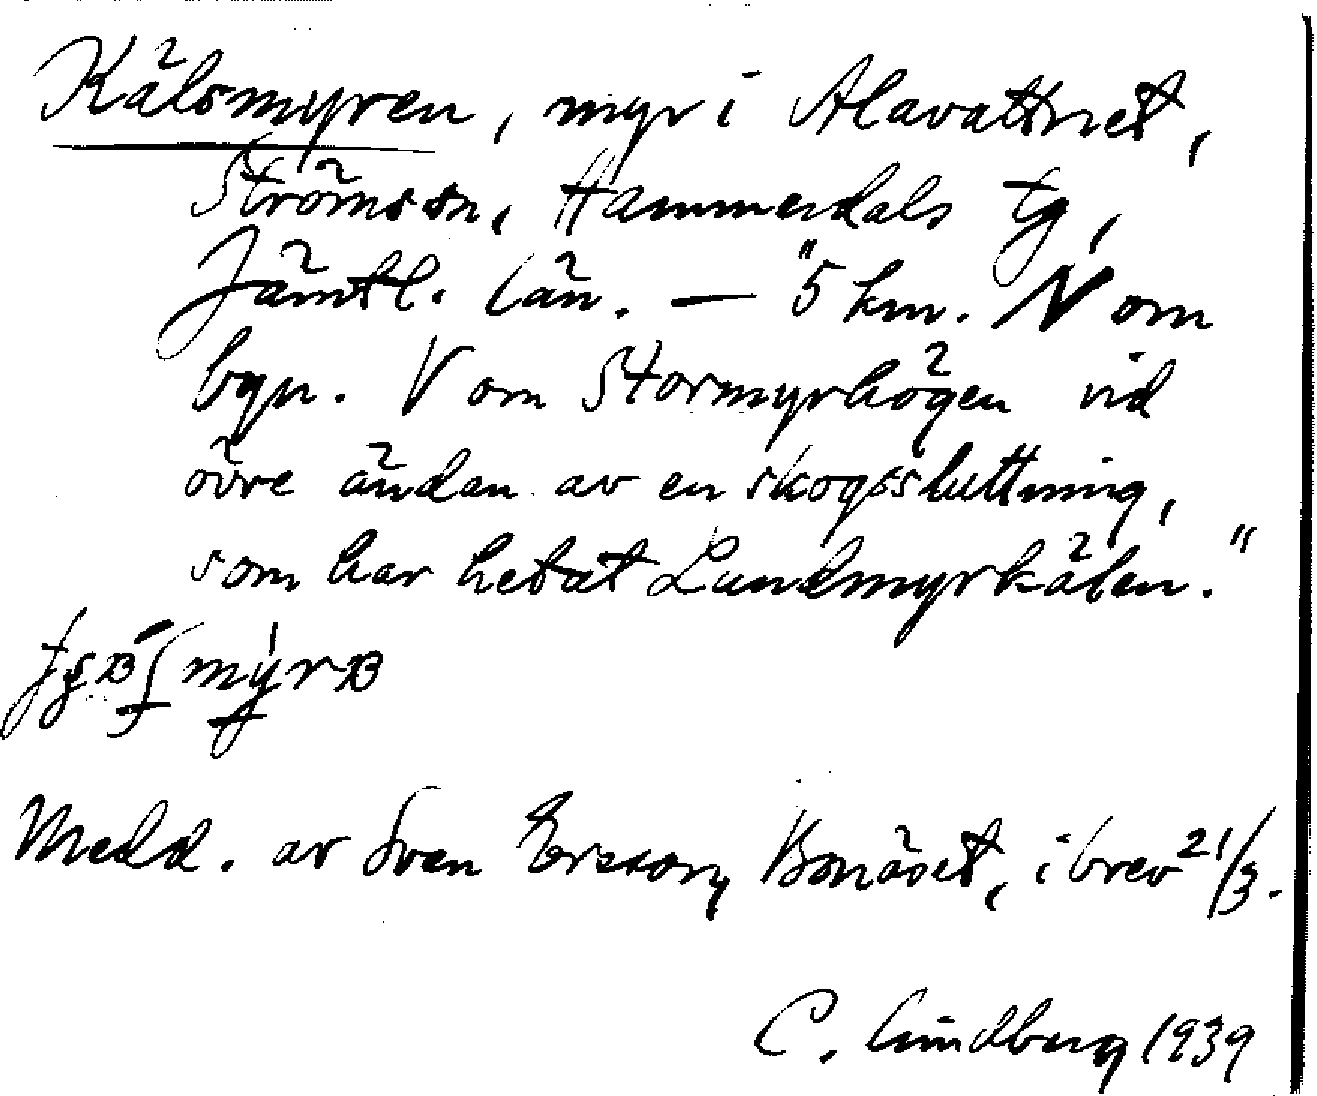 Kälsmyren, myr i Alavattnet,
Ströms sn, Hammerdals tg,
Jämtl. län. — "5 km. N om
byn. V om Stormyrhögen vid
övre ändan av en skogssluttning,
som har hetat Lundmyrkälen."
Medd. av Sven Ersson, Bonäset, i brev 21/3.
C. Lindberg 1939